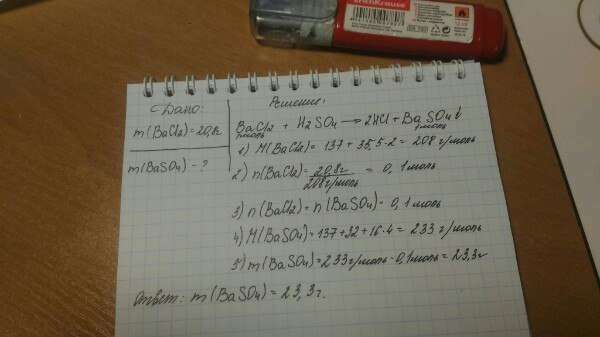 ErichKrause
Дано:
m(BaCl2)=20,8г
m(BaSO4) - ?
Решение:
BaCl2 + H2SO4 → 2HCl + BaSO4↓
1моль 1моль
1) M(BaCl2) = 137 + 35,5·2 = 208 г/моль
2) n(BaCl2) = 20,8г / 208г/моль = 0,1моль
3) n(BaCl2) = n(BaSO4) = 0,1моль
4) M(BaSO4) = 137+32+16·4 = 233 г/моль
5) m(BaSO4) = 233г/моль · 0,1моль = 23,3г
Ответ: m(BaSO4) = 23,3г.